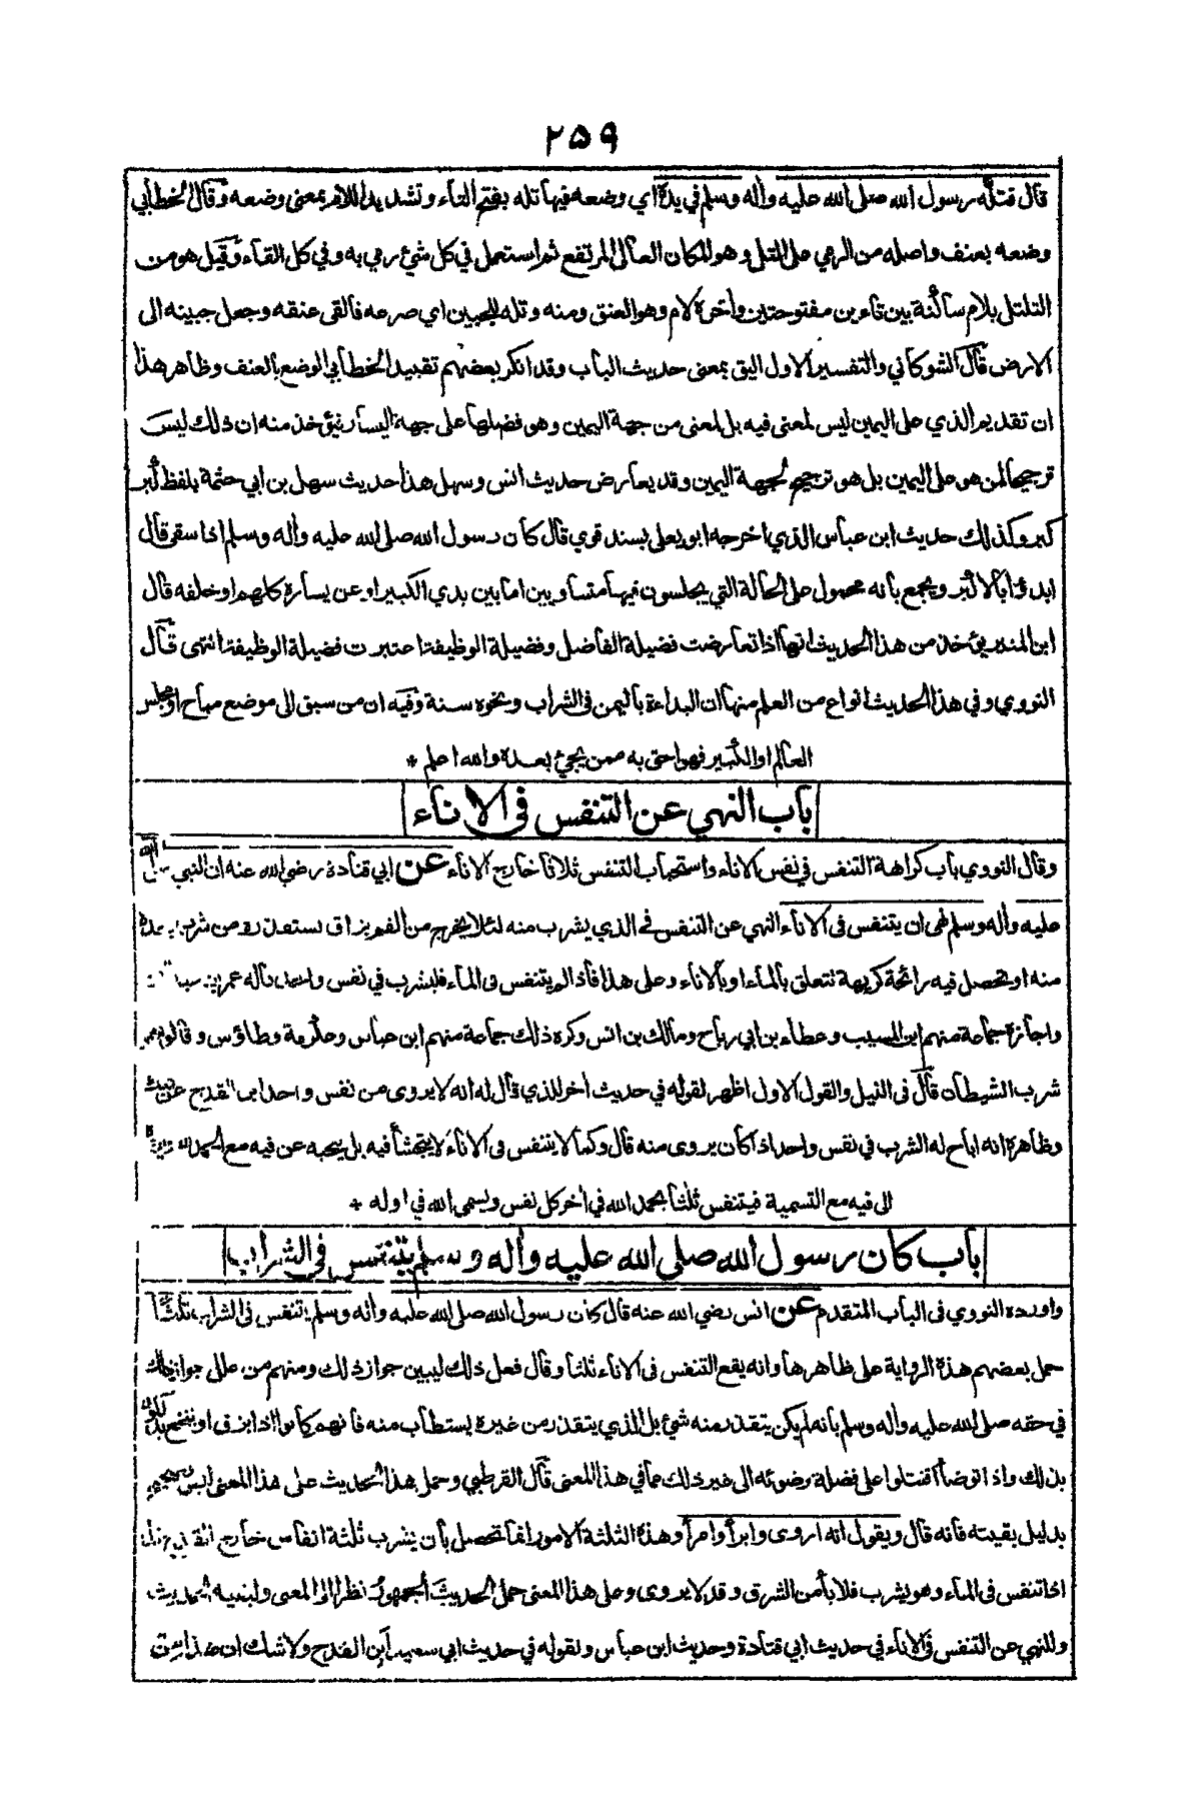 ٢٥٩
قال فتله رسول الله صلى الله عليه وأله وسلم في يده اي وضعه فيها تله بفتح التاء وتشديد اللام بمعنى وضعه وقال الخطابي
وضعه بعنف واصله من الرمي على التل وهو المكان العالى المرتفع ثم استعمل في كل شيء رمي به وفي كل القاء وقيل هو من
التلتل بلام ساكنة بين تاءين مفتوحتين وأخره لام وهو العنق ومنه وتله للجبين اي صرعه فالقى عنقه وجعل جبينه الى
الارض قال الشوكاني والتفسير الاول اليق بمعنى حديث الباب وقد انكر بعضهم تقييد الخطابي الوضع بالعنف وظاهر هذا
ان تقديم الذي على اليمين ليس لمعنى فيه بل لمعنى من جهة اليمين وهو فضلها على جهة اليسار فيؤخذ منه ان ذلك ليس
ترجيحا لمن هو على اليمين بل هو ترجيح لجهة اليمين وقد يعارض حديث انس وسهل هذا حديث سهل بن ابي حثمة بلفظ كبر
كبر وكذلك حديث ابن عباس الذي اخرجه ابو يعلى بسند قوي قال كان رسول الله صلى الله عليه وأله وسلم اذا سقى قال
ابدؤا بالاكبر ويجمع بانه محمول على الحالة التي يجلسون فيها متساويين اما بين يدي الكبير او عن يساره كلهم او خلفه قال
ابن المنير يؤخذ من هذا الحديث انها اذا تعارضت فضيلة الفاضل وفضيلة الوظيفة اعتبرت فضيلة الوظيفة انتهى قال
النووي وفي هذا الحديث انواع من العلم منها ان البداءة باليمين في الشراب ونحوه سنة وفيه ان من سبق الى موضع مباح او مجلس
العالم او الكبير فهو احق به ممن يجيئ بعده والله اعلم *
باب النهي عن التنفس فى الاناء
وقال النووي باب كراهة التنفس في نفس الاناء واستحباب التنفس ثلاثا خارج الاناء عن ابي قتادة رضي الله عنه ان النبي صلى الله
عليه وأله وسلم نهى ان يتنفس فى الاناء النهي عن التنفس في الذي يشرب منه لئلا يخرج من الفم بزاق يستقذره من شرب بعده
منه او تحصل فيه رائحة كريهة تتعلق بالماء او بالاناء وعلى هذا فاذا لم يتنفس فى الماء فليشرب في نفس واحد قاله عمر بن
واجازه جماعة منهم ابن المسيب وعطاء بن ابي رباح ومالك بن انس وكره ذلك جماعة منهم ابن عباس وعكرمة وطاؤس وقالوا هو
شرب الشيطان قال فى النيل والقول الاول اظهر لقوله في حديث أخر للذي قال له انه لا يروى من نفس واحد ابن القدح عن فيك
وظاهره انه اباح له الشرب في نفس واحد اذا كان يروى منه قال وكما لا يتنفس فى الاناء لا يتجشأ فيه بل ينحيه عن فيه مع الحمد لله
الى فيه مع التسمية فيتنفس ثلثا يحمد الله في أخر كل نفس ويسمى الله في اوله *
باب كان رسول الله صلى الله عليه وأله وسلم يتنفس فى الشراب
واورده النووي فى الباب المتقدم عن انس رضي الله عنه قال كان رسول الله صلى الله عليه وأله وسلم يتنفس فى الشراب ثلثا
حمل بعضهم هذه الرواية على ظاهرها وانه يقع التنفس فى الاناء ثلثا وقال فعل ذلك ليبين جواز ذلك ومنهم من علل جواز ذلك
في حقه صلى الله عليه وأله وسلم بانه لم يكن يتقذر منه شيء بل الذي يتقذر من غيره يستطاب منه فانهم كانوا اذا بزق او تنخع
بذلك واذا توضأ اقتتلوا على فضلة وضوئه الى غير ذلك مما في هذا المعنى قال القرطبي وحمل هذا الحديث على هذا المعنى ليس بصحيح
بدليل بقيته فانه قال ويقول انه اروى وابرأ وامرأ وهذه الثلثة الامور انما تحصل بان يشرب ثلثة انفاس خارج
اذا تنفس فى الماء وهو يشرب فلا يأمن الشرق وقد لا يروى وعلى هذا المعنى حمل الحديث الجمهور نظرا الى المعنى ولبقية الحديث
وللنهي عن التنفس فى الاناء في حديث ابي قتادة وحديث ابن عباس ولقوله في حديث ابي سعيد ابن القدح ولا شك ان هذا من